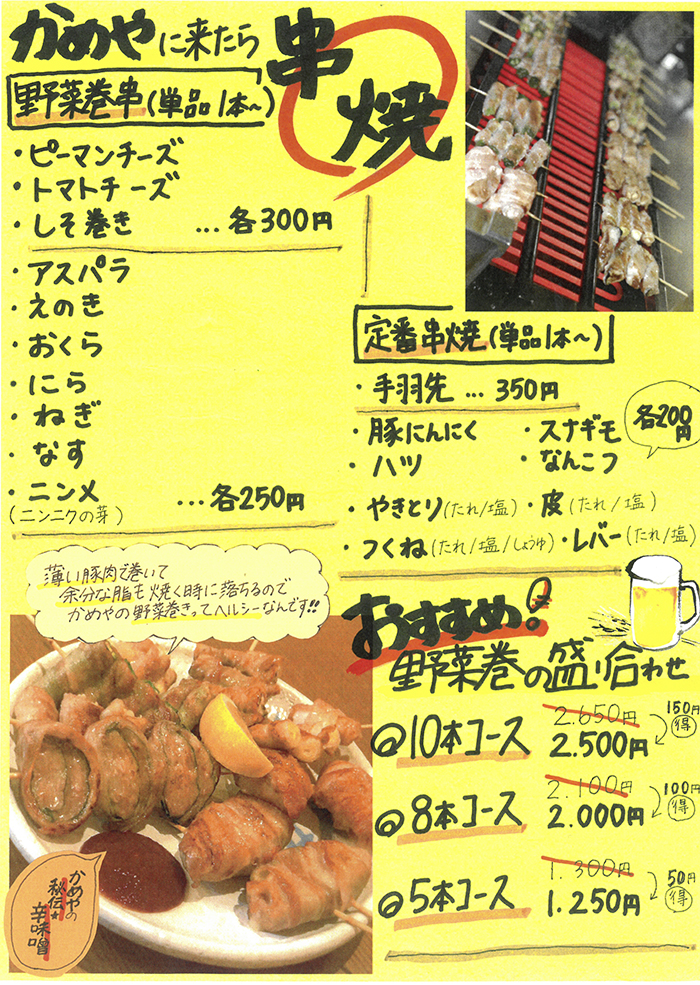 かめやに来たら
串焼
野菜巻串(単品1本~)
・ピーマンチーズ
・トマトチーズ
・しそ巻き …各300円
・アスパラ
・えのき
・おくら
・にら
・ねぎ
・なす
・ニンメ …各250円
(ニンニクの芽)
定番串焼(単品1本~)
・手羽先 … 350円
各200円
・豚にんにく ・スナギモ
・ハツ ・なんこつ
・やきとり(たれ/塩) ・皮(たれ/塩)
・つくね(たれ/塩/しょうゆ) ・レバー(たれ/塩)
薄い豚肉で巻いて
余分な脂も焼く時に落ちるので
かめやの野菜巻きってヘルシーなんです!!
かめやの
秘伝★
辛味噌
おすすめ!
野菜巻の盛り合わせ
10本コース 2.650円 2.500円 150円得
8本コース 2.100円 2.000円 100円得
5本コース 1.300円 1.250円 50円得